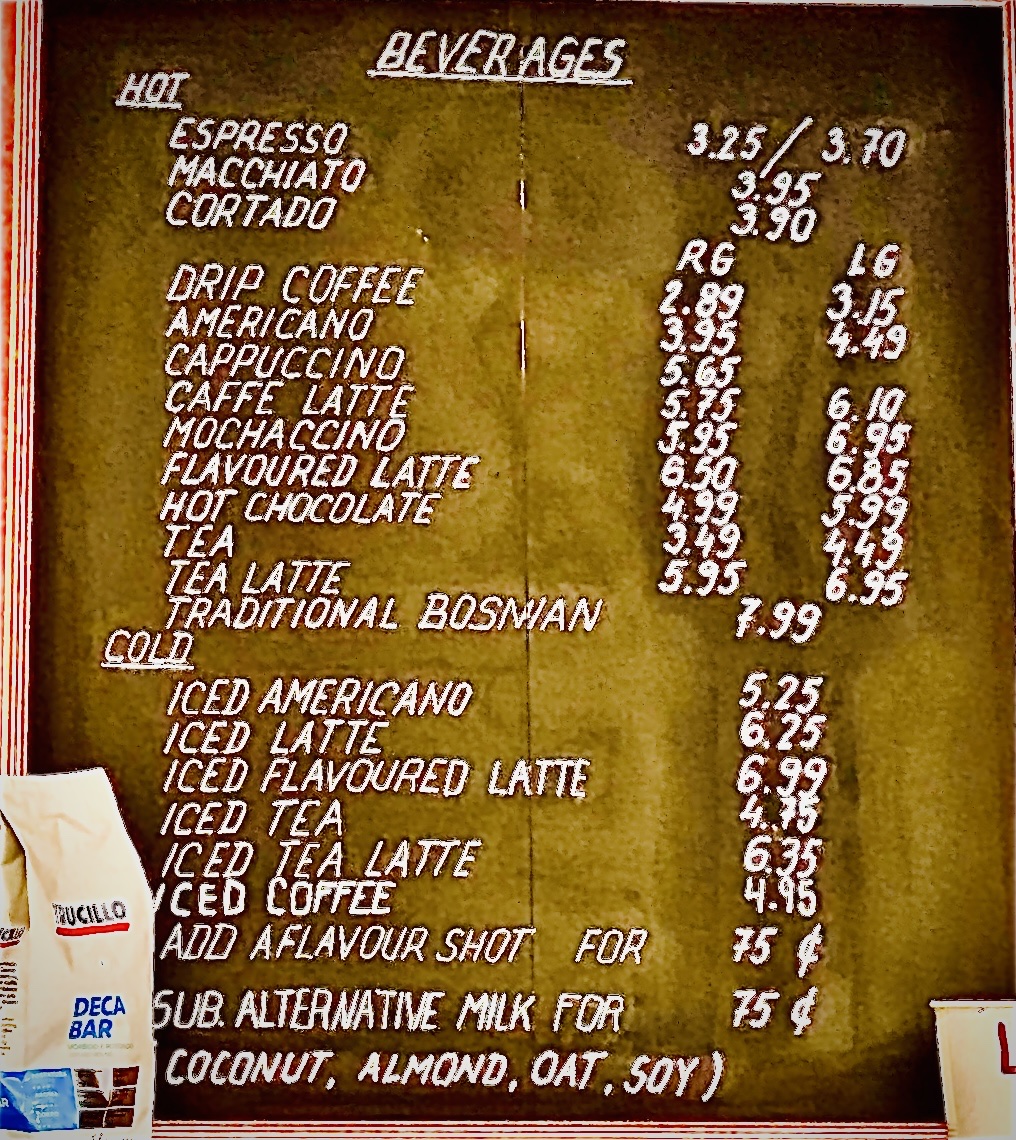 BEVERAGES
HOT
ESPRESSO 3.25 / 3.70
MACCHIATO 3.95
CORTADO 3.90
RG LG
DRIP COFFEE 2.89 3.15
AMERICANO 3.95 4.49
CAPPUCCINO 5.65
CAFFE LATTE 5.75 6.10
MOCHACCINO 5.95 6.95
FLAVOURED LATTE 6.50 6.85
HOT CHOCOLATE 4.99 5.99
TEA 3.49 4.49
TEA LATTE 5.95 6.95
TRADITIONAL BOSNIAN 7.99
COLD
ICED AMERICANO 5.25
ICED LATTE 6.25
ICED FLAVOURED LATTE 6.99
ICED TEA 4.75
ICED TEA LATTE 6.35
ICED COFFEE 4.95
ADD A FLAVOUR SHOT FOR 75 ¢
SUB. ALTERNATIVE MILK FOR 75 ¢
(COCONUT, ALMOND, OAT, SOY)
TRUCILLO
DECA
BAR